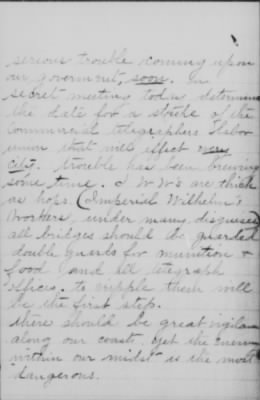 serious trouble coming upon
our government, soon. In
secret meeting today determine
the date for a strike of the
Commercial telegraphers Labor
union that will effect every
city. trouble has been brewing
some time. I W W's are thick
as hops (Imperial Wilhelm's
Workers, under many disguises
all bridges should be guarded
double guards for munition &
food and all telegraph
offices. to cripple them will
be the first step.
there should be great vigilance
along our coast. yet the Enemy
within our midst is the most
dangerous.